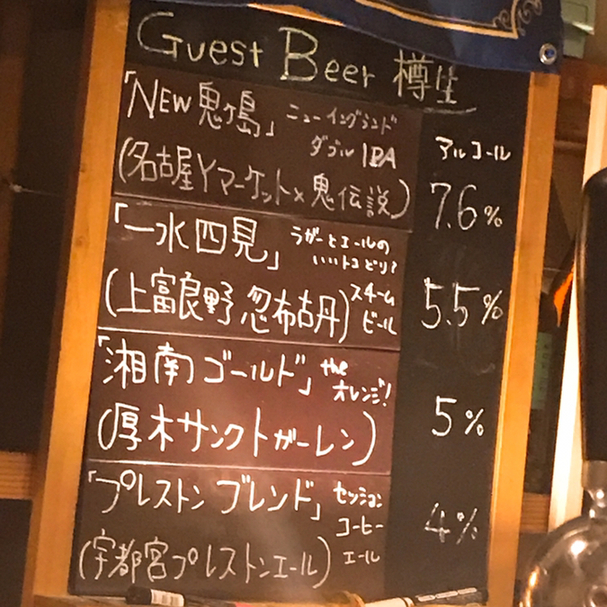 Guest Beer 樽生
アルコール
「NEW鬼ヶ島」 ニューイングランド
ダブルIPA
(名古屋Yマーケット×鬼伝説) 7.6%
「一水四見」 ラガーとエールの
いいトコどり?
(上富良野 忽布古丹) スチーム
ビール
5.5%
「湘南ゴールド」 the
オレンジ!
(厚木サンクトガーレン) 5%
「プレストンブレンド」 セッション
コーヒー
エール
(宇都宮プレストンエール) 4%